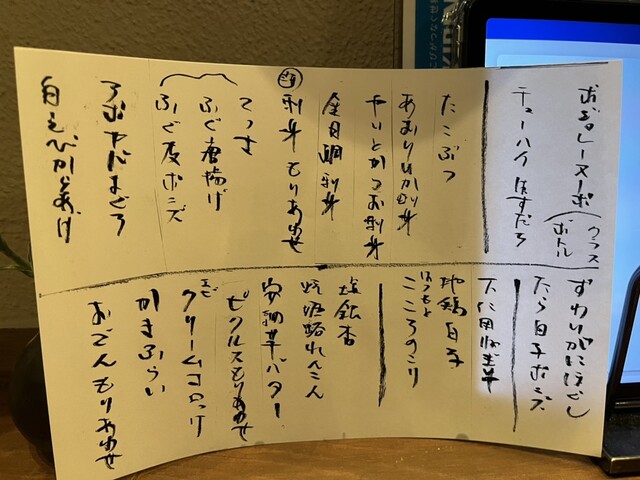 ボジョレーヌーボ
グラス
ボトル
チューハイ はすだち
たこぶつ
あおりいか刺身
やいとかつお刺身
金目鯛刺身
刺身 もりあわせ
てっさ
ふぐ唐揚げ
ふぐ皮ポンズ
アボカドまぐろ
白えびからあげ
ずわいがにほぐし
たら白子ポンズ
地鶏白子
はつもと
こころのこり
塩銀杏
れんこん
バター
ピクルスもりあわせ
エビ
クリームコロッケ
かきふらい
おでんもりあわせ